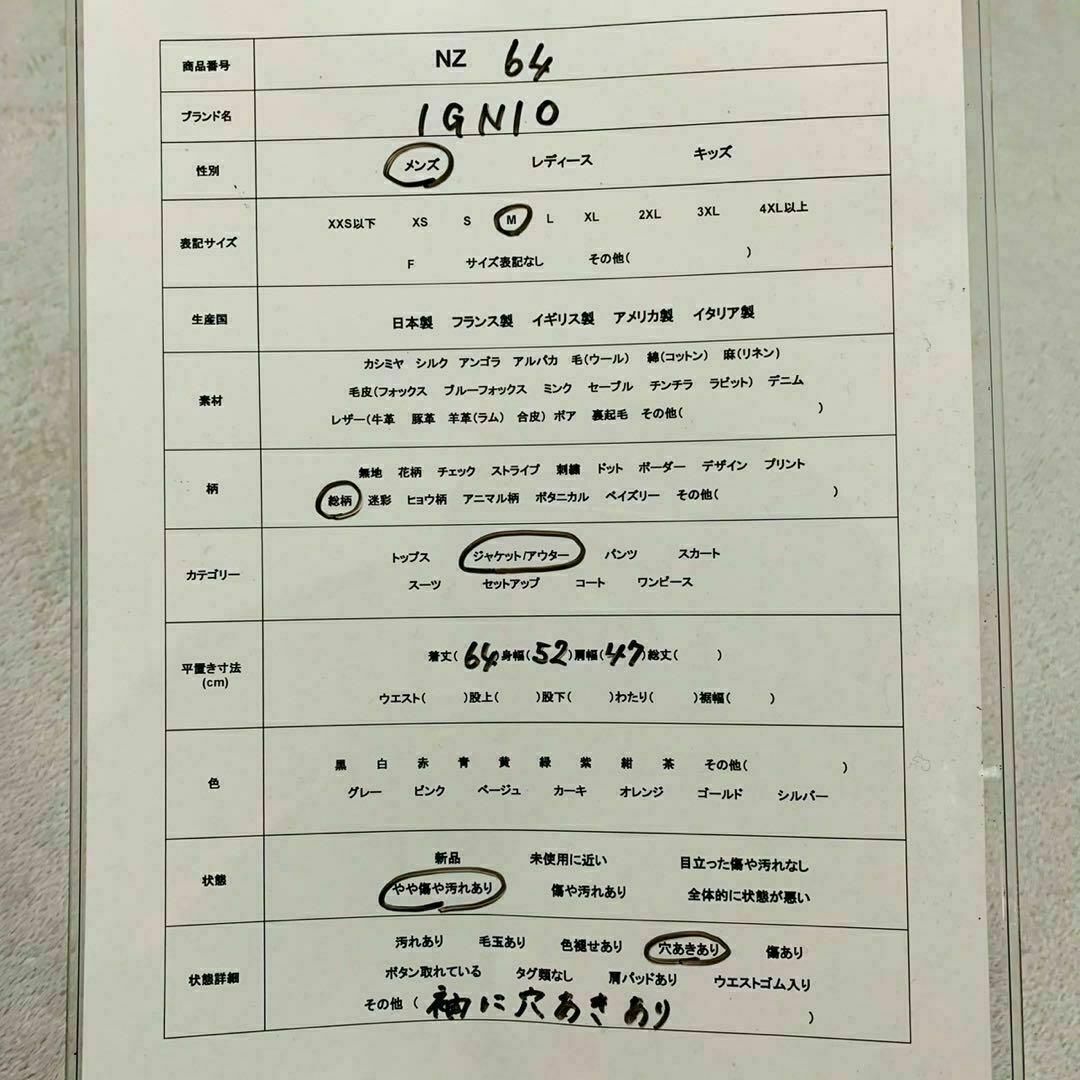 商品番号 NZ 64
ブランド名 IGNIO
性別 メンズ レディース キッズ
XXS以下 XS S M L XL 2XL 3XL 4XL以上
表記サイズ
F サイズ表記なし その他( )
生産国 日本製 フランス製 イギリス製 アメリカ製 イタリア製
カシミヤ シルク アンゴラ アルパカ 毛(ウール) 綿(コットン) 麻(リネン)
素材 毛皮(フォックス ブルーフォックス ミンク セーブル チンチラ ラビット) デニム
レザー(牛革 豚革 羊革(ラム) 合皮) ボア 裏起毛 その他( )
無地 花柄 チェック ストライプ 刺繍 ドット ボーダー デザイン プリント
柄
総柄 迷彩 ヒョウ柄 アニマル柄 ボタニカル ペイズリー その他( )
トップス ジャケット/アウター パンツ スカート
カテゴリー
スーツ セットアップ コート ワンピース
着丈(64)身幅(52)肩幅(47)総丈( )
平置き寸法
(cm)
ウエスト( )股上( )股下( )わたり( )裾幅( )
黒 白 赤 青 黄 緑 紫 紺 茶 その他( )
色
グレー ピンク ベージュ カーキ オレンジ ゴールド シルバー
新品 未使用に近い 目立った傷や汚れなし
状態
やや傷や汚れあり 傷や汚れあり 全体的に状態が悪い
汚れあり 毛玉あり 色褪せあり 穴あきあり 傷あり
状態詳細 ボタン取れている タグ類なし 肩パッドあり ウエストゴム入り
その他 ( 袖に穴あきあり )